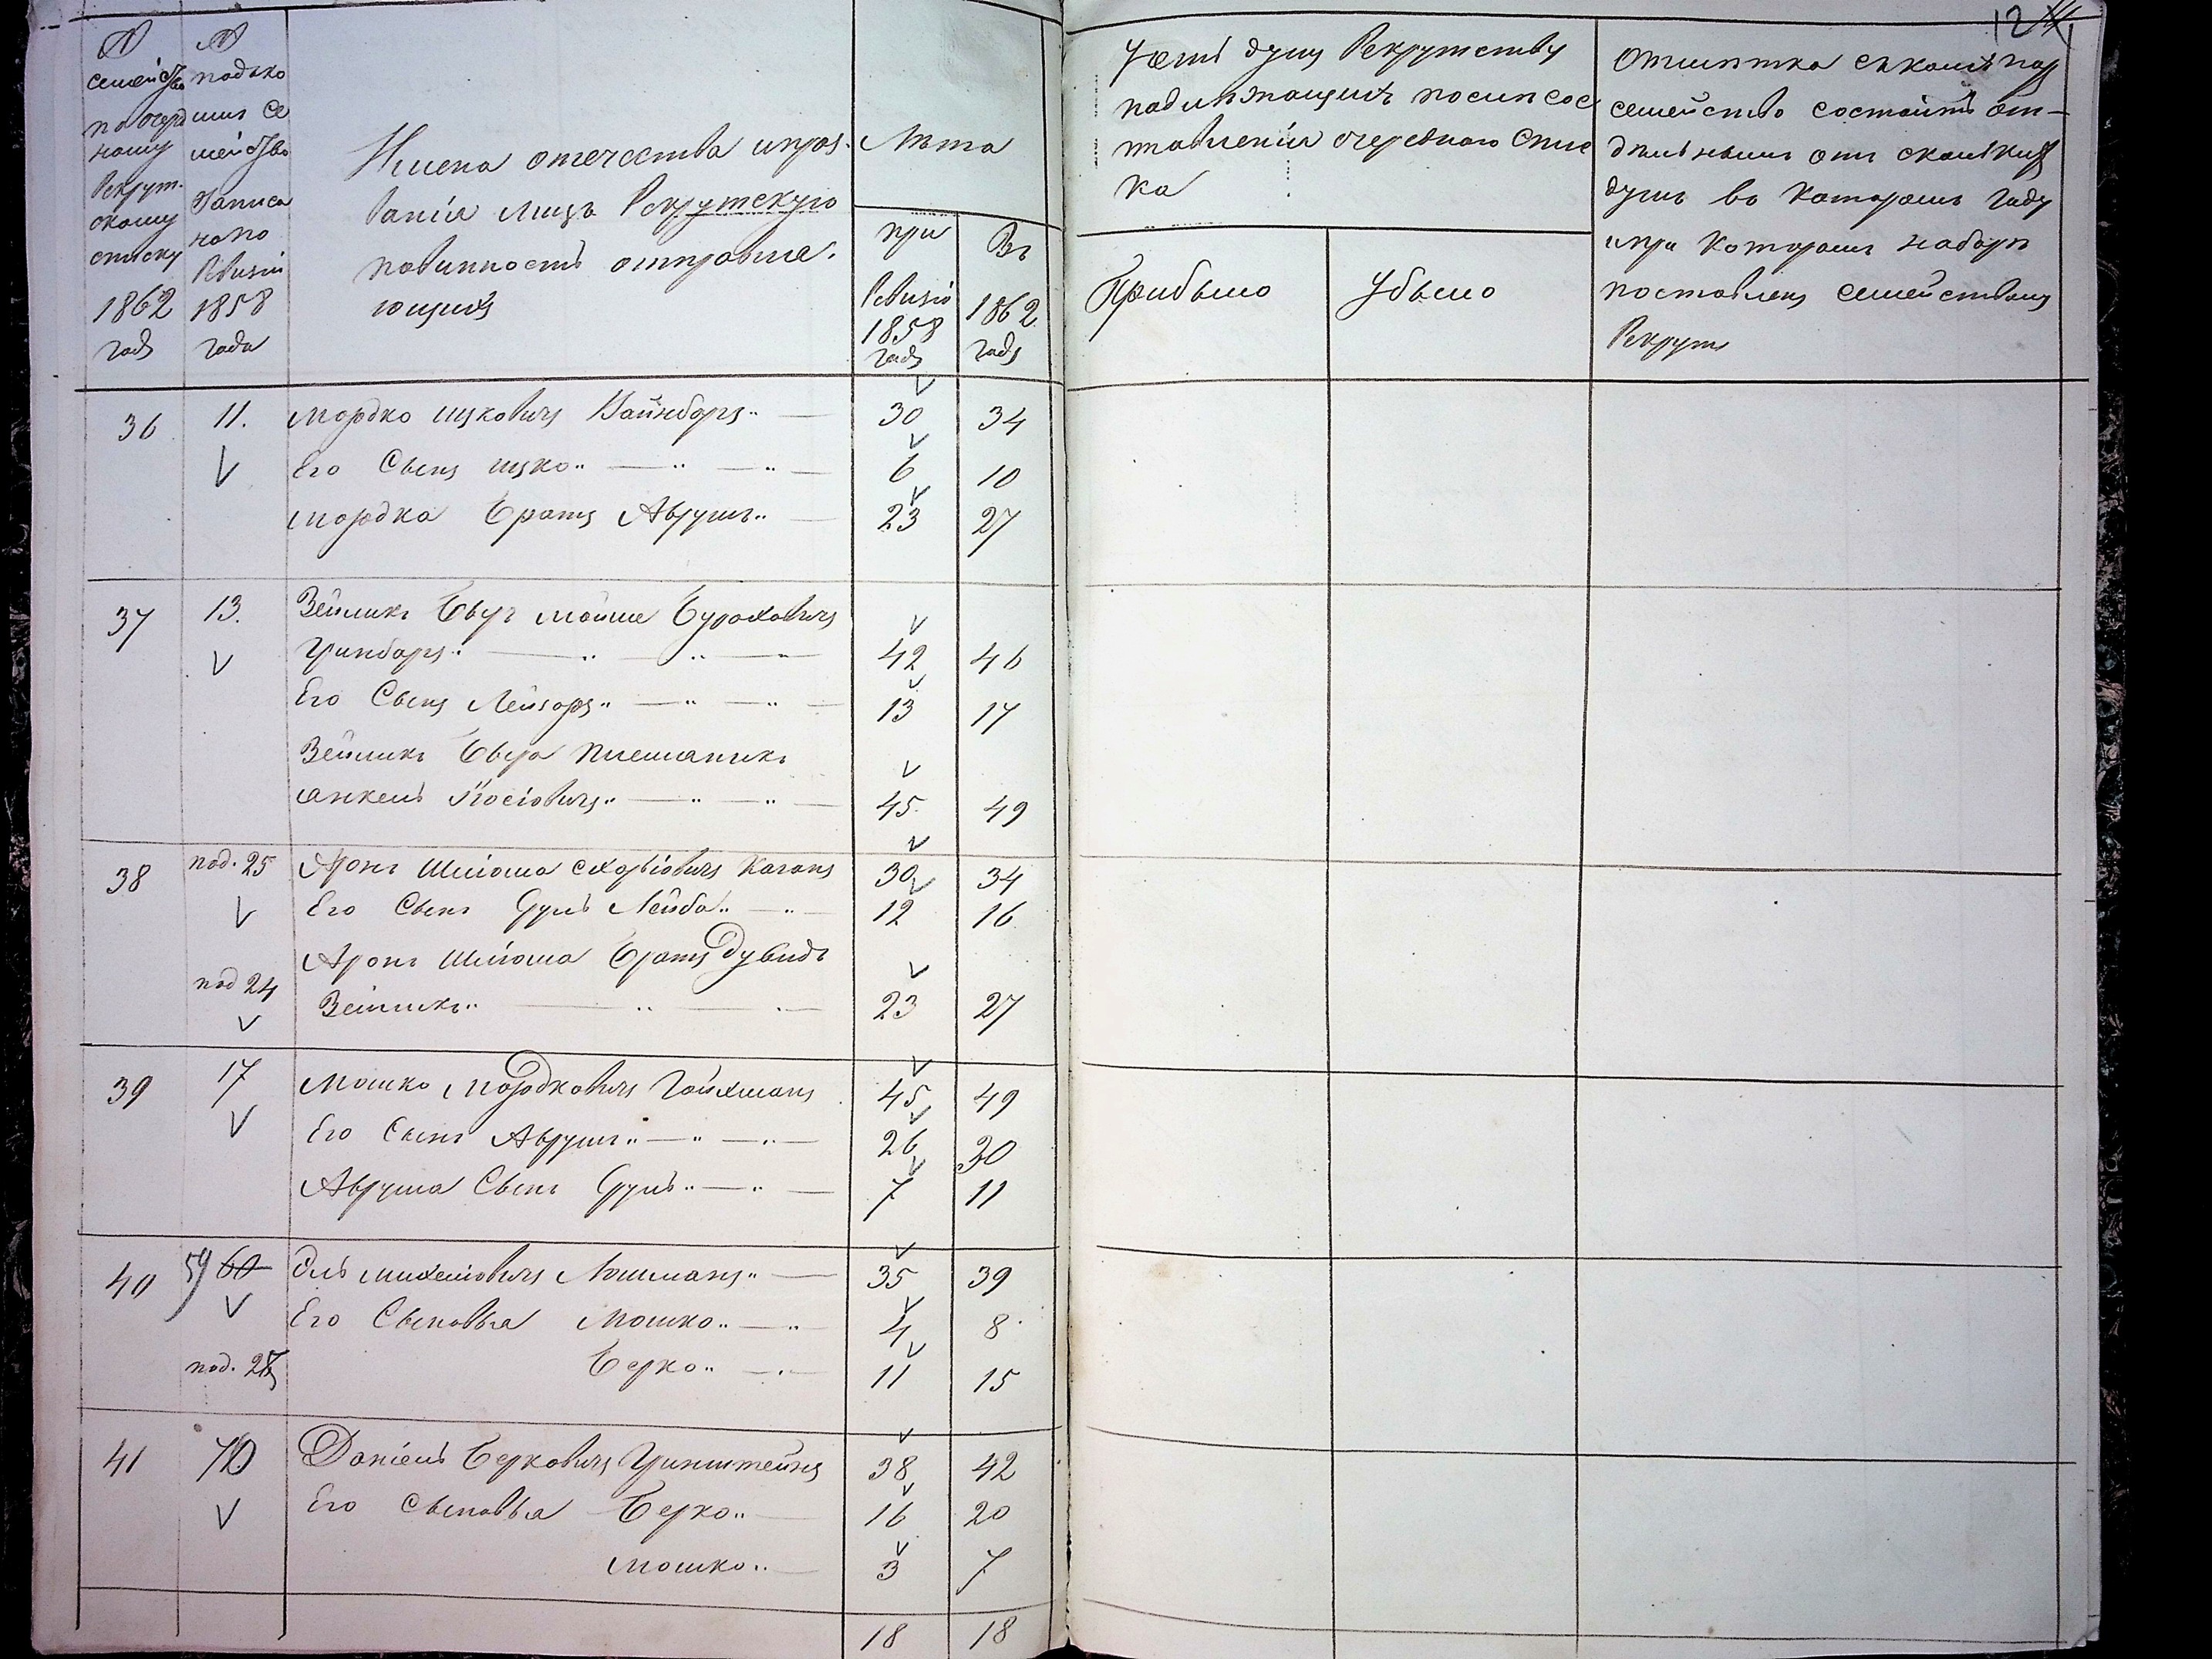 № семейства по очередному Рекрутскому списку 1862 года
№ подъкоимъ семейство Записано по Ревизіи 1858 года
Имена отечества ипроз-
ванія лицъ Рекрутскую
повинность отправля-
ющихъ
Лѣта
при Ревизіи 1858 году
Въ 1862 году
Рекрутству
подлѣжащихъ послѣ сос
тавленія очереднаго Спис
ка
Прибыло
Убыло
Отмѣтка
семейство состоитъ от-
дѣльнымъ отъ сколькихъ
душъ во которомъ году
ипри которомъ наборѣ
поставленъ семействомъ
Рекрутъ
12
36 11. Мордко Ицковичъ Вайнборъ 30 34
Его Сынъ Ицко 6 10
Мордка Братъ Аврумъ 23 27
37 13. Зейликъ Гершъ Мойше Бураховичъ
Гринборъ 42 46
Его Сынъ Лейзоръ 13 17
Зейликъ племяникъ
Анкель Йосіовичъ 45 49
38 под. 25 Аронъ Шлiома Каганъ 30 34
Его Сынъ Сруль Лейба 12 16
Аронъ Шлiома Братъ Дувидъ
под 24 Зейликъ 23 27
39 17 Мошко Мордковичъ Гойхманъ 45 49
Его Сынъ Аврумъ 26 30
Аврума Сынъ Сруль 7 11
40 59 60 Эль Михелiовичъ 35 39
Его Сыновья Мошко 4 8
под. Берко 11 15
41 70 Данiель Берковичъ Гринштейнъ 38 42
Его Сыновья Берко 16 20
Мошко 3 7
18 18